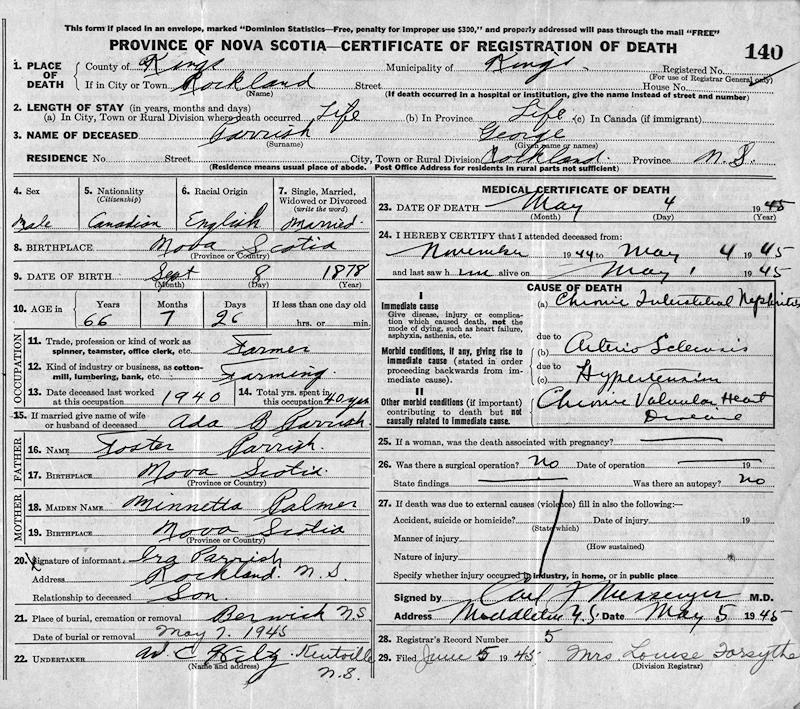 This form if placed in an envelope, marked "Dominion Statistics—Free, penalty for improper use $300," and properly addressed will pass through the mail "FREE"
PROVINCE OF NOVA SCOTIA—CERTIFICATE OF REGISTRATION OF DEATH 140
1. PLACE OF DEATH County of Kings Municipality of Kings Registered No.
(For use of Registrar General only)
If in City or Town Rockland Street House No.
(Name) (If death occurred in a hospital or institution, give the name instead of street and number)
2. LENGTH OF STAY (in years, months and days)
(a) In City, Town or Rural Division where death occurred Life (b) In Province Life (c) In Canada (if immigrant)
3. NAME OF DECEASED Parrish George
(Surname) (Given name or names)
RESIDENCE No Street City, Town or Rural Division Rockland. Province N.S.
(Residence means usual place of abode. Post Office Address for residents in rural parts not sufficient)
4. Sex 5. Nationality (Citizenship) 6. Racial Origin 7. Single, Married, Widowed or Divorced (write the word)
Male Canadian English Married
8. BIRTHPLACE Nova Scotia
(Province or Country)
9. DATE OF BIRTH Sept 8 1878
(Month) (Day) (Year)
10. AGE in Years Months Days If less than one day old
66 7 26 hrs. or min.
OCCUPATION
11. Trade, profession or kind of work as spinner, teamster, office clerk, etc. Farmer
12. Kind of industry or business, as cotton-mill, lumbering, bank, etc. Farming
13. Date deceased last worked at this occupation 1940 14. Total yrs. spent in this occupation 40 yrs
15. If married give name of wife or husband of deceased Ada B Parrish.
FATHER
16. NAME Foster Parrish.
17. BIRTHPLACE Nova Scotia.
(Province or Country)
MOTHER
18. MAIDEN NAME Minnetta Palmer
19. BIRTHPLACE Nova Scotia
(Province or Country)
20. Signature of informant Ira Parrish
Address Rockland. N.S.
Relationship to deceased Son.
21. Place of burial, cremation or removal Berwick N.S.
Date of burial or removal May 7. 1945
22. UNDERTAKER Kentville N.S.
(Name and address)
MEDICAL CERTIFICATE OF DEATH
23. DATE OF DEATH May 4 1945
(Month) (Day) (Year)
24. I HEREBY CERTIFY that I attended deceased from:
November 1944 to May 4 1945
and last saw him alive on May 1 1945
CAUSE OF DEATH
I
Immediate cause (a) Chronic Interstitial Nephritis
Give disease, injury or complication which caused death, not the mode of dying, such as heart failure, asphyxia, asthenia, etc.
Morbid conditions, if any, giving rise to immediate cause (stated in order proceeding backwards from immediate cause).
due to
(b) Arterio Sclerosis
due to
(c) Hypertension
II
Other morbid conditions (if important) contributing to death but not causally related to immediate cause.
Chronic Valvular Heart
Disease
25. If a woman, was the death associated with pregnancy?
26. Was there a surgical operation? No Date of operation 19
State findings Was there an autopsy? No
27. If death was due to external causes (violence) fill in also the following:—
Accident, suicide or homicide? Date of injury 19
(State which)
Manner of injury
(How sustained)
Nature of injury
Specify whether injury occurred in industry, in home, or in public place
Signed by Carl F Messenger M.D.
Address Middleton N.S. Date May 5 1945
28. Registrar's Record Number 5
29. Filed June 5 1945 Mrs Louise Forsythe
(Division Registrar)